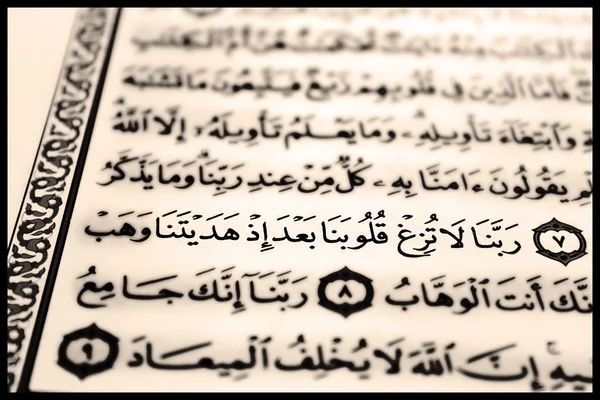 ٱلْكِتَٰبَ مِنْهُ ءَايَٰتٌ مُّحْكَمَٰتٌ هُنَّ أُمُّ ٱلْكِتَٰبِ
فَأَمَّا ٱلَّذِينَ فِى قُلُوبِهِمْ زَيْغٌ فَيَتَّبِعُونَ مَا تَشَٰبَهَ
وَٱبْتِغَآءَ تَأْوِيلِهِۦ وَمَا يَعْلَمُ تَأْوِيلَهُۥٓ إِلَّا ٱللَّهُ
يَقُولُونَ ءَامَنَّا بِهِۦ كُلٌّ مِّنْ عِندِ رَبِّنَا وَمَا يَذَّكَّرُ
٧ رَبَّنَا لَا تُزِغْ قُلُوبَنَا بَعْدَ إِذْ هَدَيْتَنَا وَهَبْ
أَنتَ ٱلْوَهَّابُ ٨ رَبَّنَآ إِنَّكَ جَامِعُ
إِنَّ ٱللَّهَ لَا يُخْلِفُ ٱلْمِيعَادَ ٩